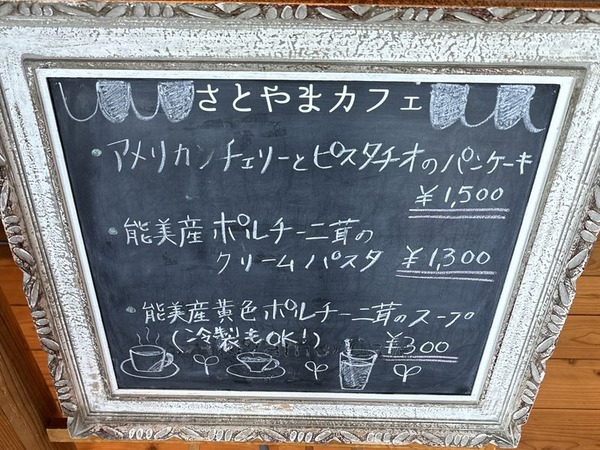 さとやまカフェ
・アメリカンチェリーとピスタチオのパンケーキ
¥1,500
・能美産ポルチーニ茸の
クリームパスタ ¥1,300
・能美産黄色ポルチーニ茸のスープ
(冷製もOK!) ¥300